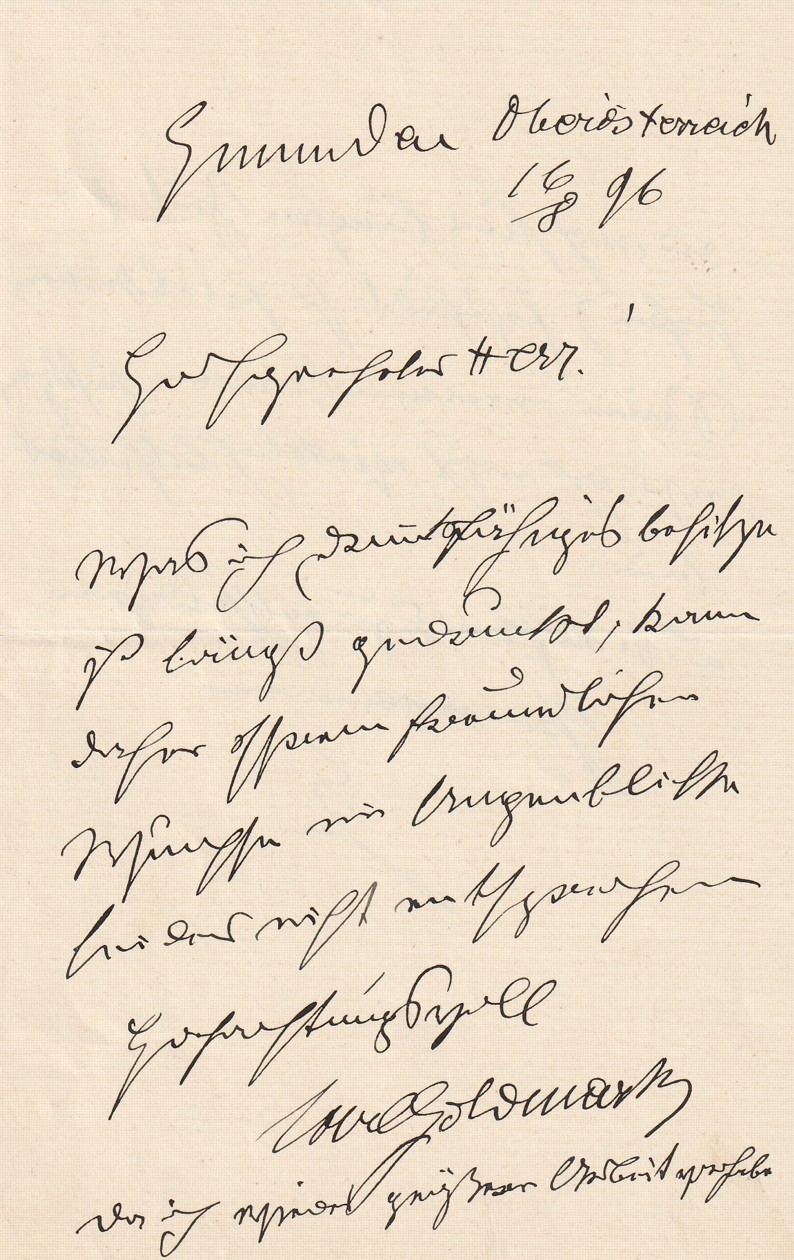 Gmunden Oberösterreich
16/8 96
Hochgeehrter Herr.
Was ich druckfähiges besitze
ist längst gedruckt, kann
daher Ihrem freundlichen
Wunsche im Augenblicke
leider nicht entsprechen
Hochachtungsvoll
Carl Goldmark
da ich wieder größere Arbeit vorhabe